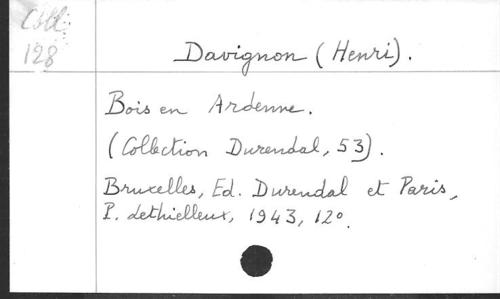 Coll.
128
Davignon (Henri).
Bois en Ardenne.
(Collection Durendal, 53).
Bruxelles, Ed. Durendal et Paris,
P. Lethielleux, 1943, 12°.